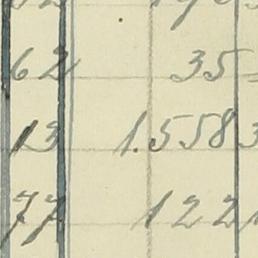 62 35
13 1.5583
77 122